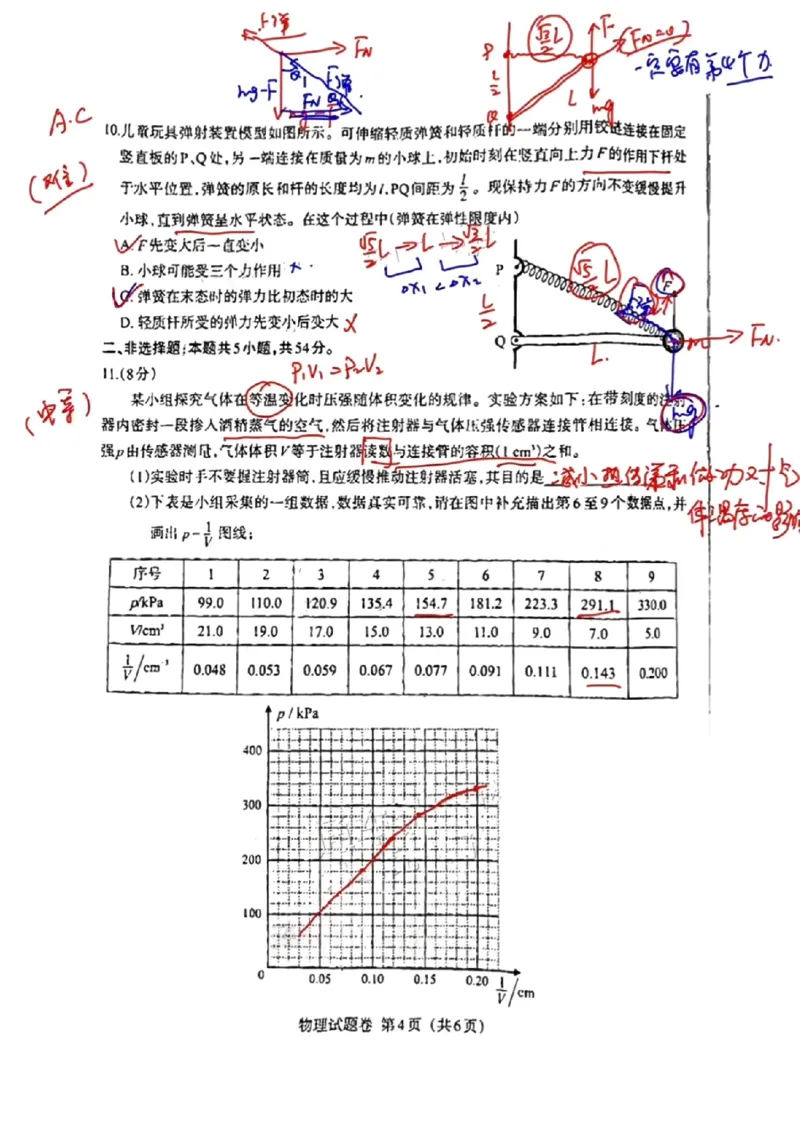 F弹
FN
mg-F
FN
F弹
P
L/2
Q
√3/2 L
F
(FN=0)
L
mg
一定要有第4个力
A.C
10.儿童玩具弹射装置模型如图所示。可伸缩轻质弹簧和轻质杆的一端分别用铰链连接在固定
竖直板的P、Q处,另一端连接在质量为m的小球上,初始时刻在竖直向上力F的作用下杆处
于水平位置,弹簧的原长和杆的长度均为l,PQ间距为 l/2 。现保持力F的方向不变缓慢提升
小球,直到弹簧呈水平状态。在这个过程中(弹簧在弹性限度内)
A.F先变大后一直变小
B.小球可能受三个力作用
C.弹簧在末态时的弹力比初态时的大
D.轻质杆所受的弹力先变小后变大 ×
√5/2 L → L → √3/2 L
△x1 < △x2
P
√5/2 L
F
F弹
L/2
Q
L.
m
FN.
mg
二、非选择题:本题共5小题,共54分。
11.(8分)
P1V1=P2V2
某小组探究气体在等温变化时压强随体积变化的规律。实验方案如下:在带刻度的注射
器内密封一段掺入酒精蒸气的空气,然后将注射器与气体压强传感器连接管相连接。气体压
强p由传感器测量,气体体积V等于注射器读数与连接管的容积(1 cm³)之和。
(1)实验时手不要握注射器筒,且应缓慢推动注射器活塞,其目的是 减小热传递和做功对气
体温度的影响
(2)下表是小组采集的一组数据,数据真实可靠,请在图中补充描出第6至9个数据点,并
画出 p-1/V 图线;
序号 1 2 3 4 5 6 7 8 9
p/kPa 99.0 110.0 120.9 135.4 154.7 181.2 223.3 291.1 330.0
V/cm³ 21.0 19.0 17.0 15.0 13.0 11.0 9.0 7.0 5.0
1/V /cm⁻³ 0.048 0.053 0.059 0.067 0.077 0.091 0.111 0.143 0.200
p / kPa
400
300
200
100
0 0.05 0.10 0.15 0.20 1/V /cm
物理试题卷 第4页 (共6页)